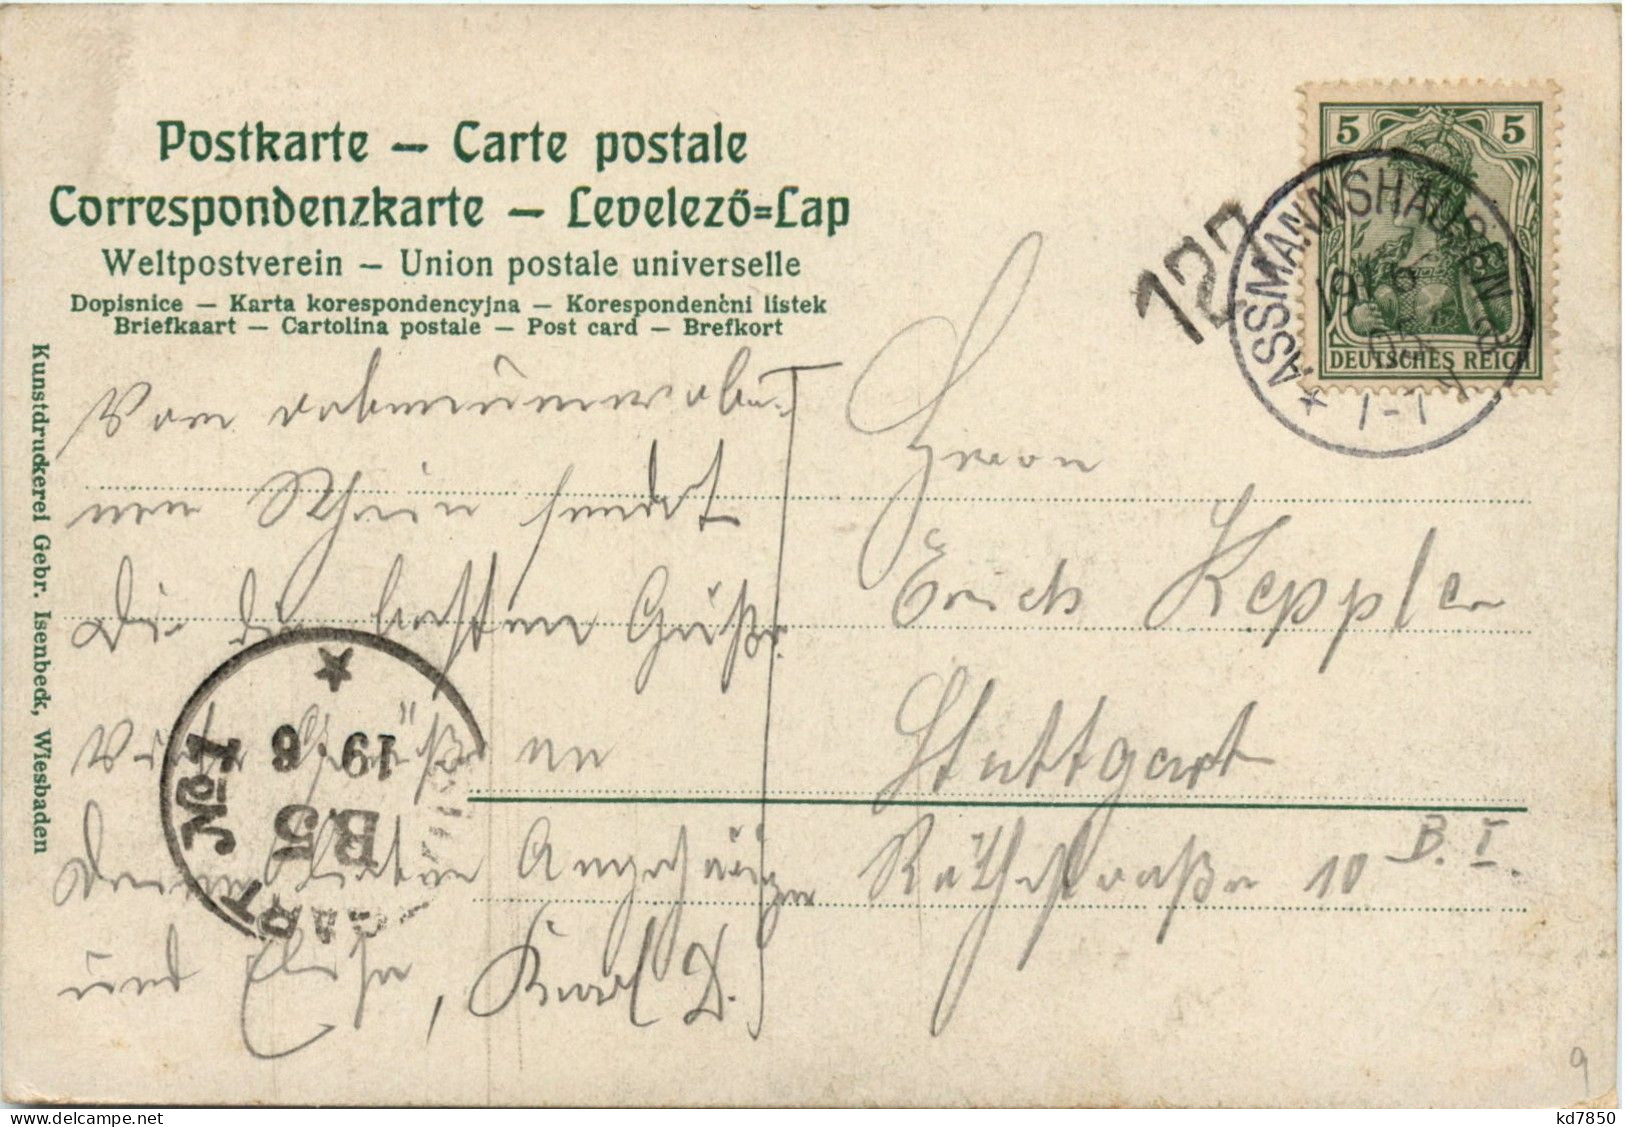 Postkarte — Carte postale
Correspondenzkarte — Levelező=Lap
Weltpostverein — Union postale universelle
Dopisnice — Karta korespondencyjna — Korespondenčni listek
Briefkaart — Cartolina postale — Post card — Brefkort
Kunstdruckerei Gebr. Isenbeck, Wiesbaden
5 5
DEUTSCHES REICH
* ASSMANNSHAUSEN
19 6
05
127
Vom
nen Rhein sendet
Dir die besten Grüße.
Viele Grüße an
Deine lieben Angehörigen
und Elisa, Karl D.
Herrn
Erich Keppler
Stuttgart
Röthestraße 10 B. I.
No 1
19 6
B5
9
www.delcampe.net
kd7850